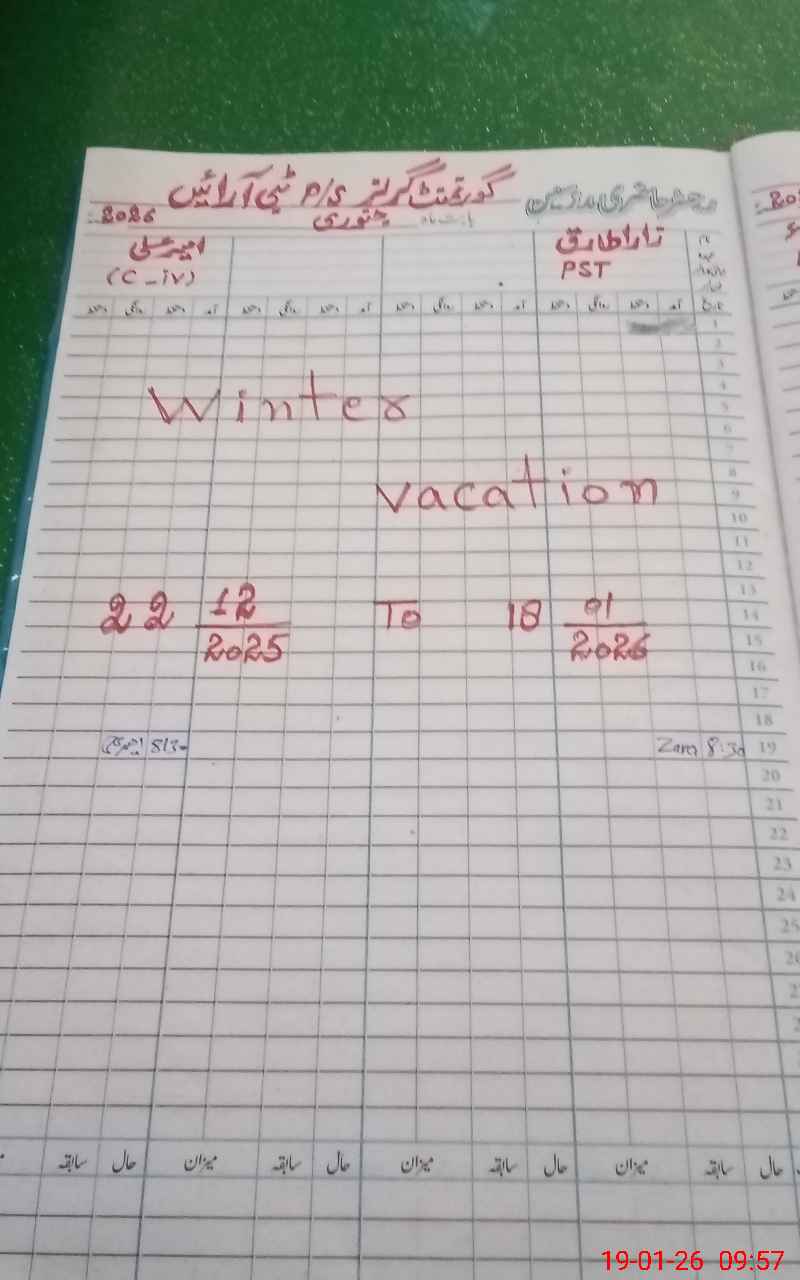 رجسٹر حاضری مدرسین گورنمنٹ گرلز P/S ٹبی آرائیں
جنوری 2026
زارا طارق
PST
امیر علی
(C-iv)
1
2
3
4
5
6
7
8
9
10
11
12
13
14
15
16
17
18
19
20
21
22
23
24
25
Winter
vacation
22 12/2025 To 18 01/2026
Zara 8:30
امیر علی 8:30
حال سابقہ میزان حال سابقہ میزان حال سابقہ میزان حال سابقہ
19-01-26 09:57